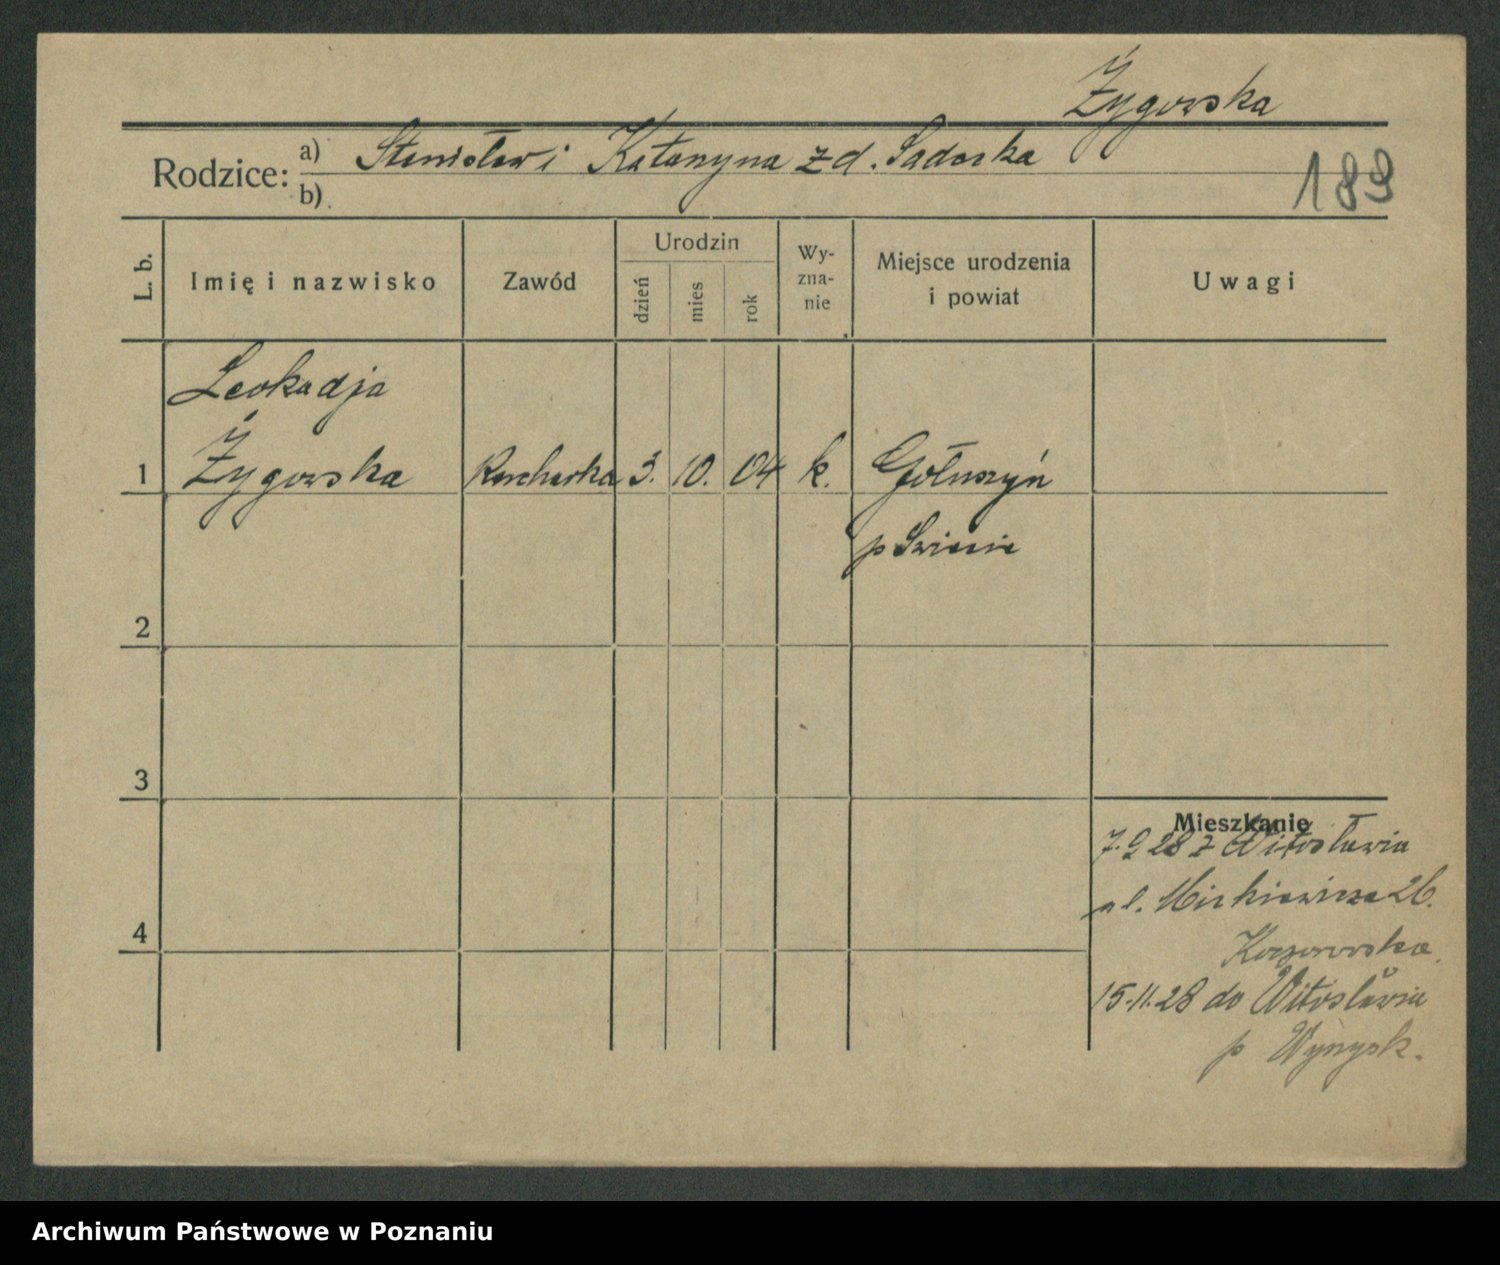 Żygowska
Rodzice: a) Stanisław i Katarzyna z d. Sadorska
b)
189
L. b.
Imię i nazwisko
Zawód
Urodzin
dzień
mies
rok
Wy-
zna-
nie
Miejsce urodzenia
i powiat
Uwagi
Leokadja
1 Żygowska Kucharka 3. 10. 04 k. Gołuszyń
p Świecie
2
3
Mieszkanie
7.9 28 z Witosławia
al. Mickiewicza 26.
4
15.11.28 do Witosławia
p Wyrzysk.
Archiwum Państwowe w Poznaniu